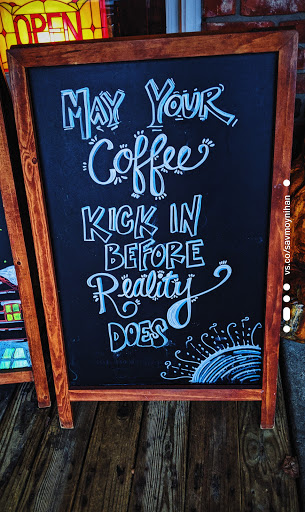 OPEN
MAY YOUR
Coffee
KICK IN
BEFORE
Reality
DOES
vs.co/savmoynihan